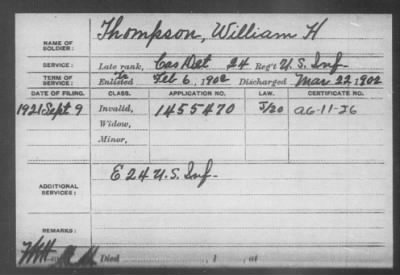 NAME OF SOLDIER: Thompson, William H
SERVICE: Late rank, Cas Det 24 Reg't U.S. Inf
TERM OF SERVICE: Enlisted Feb 6, 1902 Discharged Mar 22, 1902
DATE OF FILING. CLASS. APPLICATION NO. LAW. CERTIFICATE NO.
1921 Sept 9 Invalid, 1455470 J/20 A6-11-26
Widow,
Minor,
ADDITIONAL SERVICES: E 24 U.S. Inf
REMARKS:
Died , 1 , at